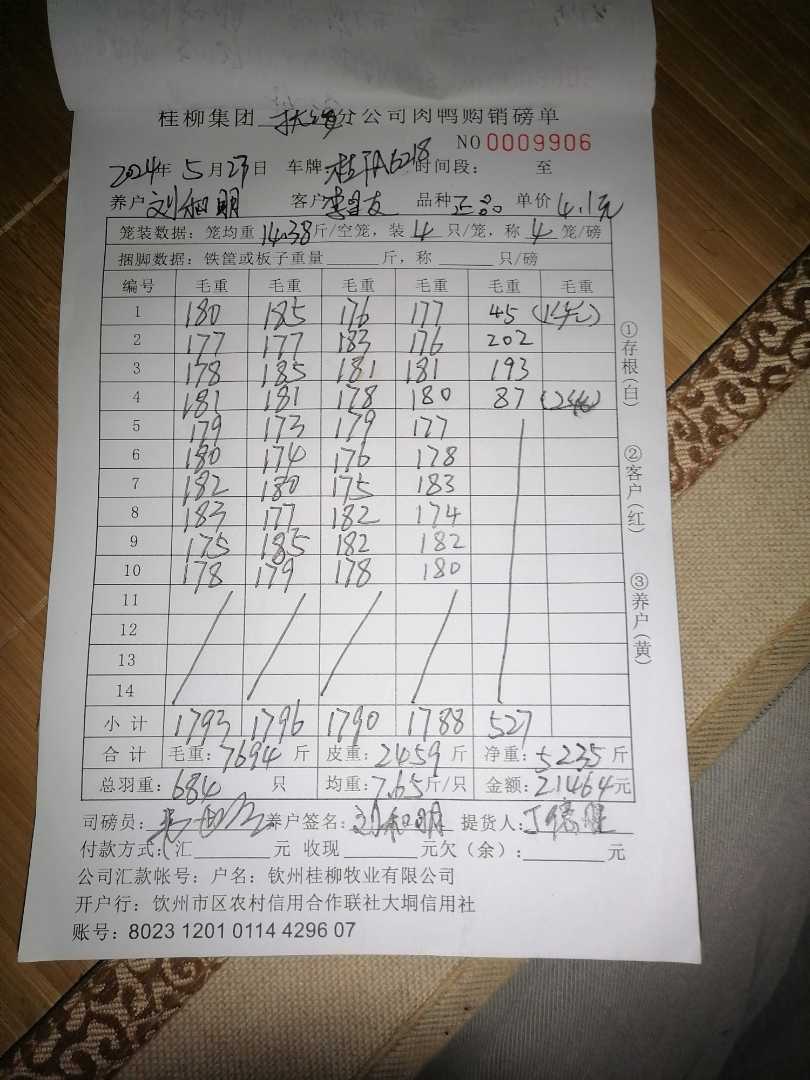 桂柳集团 分公司肉鸭购销磅单
NO 0009906
2024年 5月27日 车牌: 桂A6218 时间段: 至
养户 刘和明 客户 李呈友 品种 正品 单价 4.1元
笼装数据: 笼均重 14.38 斤/空笼, 装 4 只/笼, 称 4 笼/磅
捆脚数据: 铁筐或板子重量 斤, 称 只/磅
编号 毛重 毛重 毛重 毛重 毛重 毛重
1 180 185 176 177 45
2 177 177 183 176 202
3 178 185 181 181 193
4 181 181 178 180 87
5 179 173 179 177
6 180 174 176 178
7 182 180 175 183
8 183 177 182 174
9 175 185 182 182
10 178 179 178 180
11
12
13
14
小计 1793 1796 1790 1788 527
合计 毛重: 7694 斤 皮重: 2459 斤 净重: 5235 斤
总羽重: 684 只 均重: 7.65 斤/只 金额: 21464 元
司磅员: 养户签名: 刘和明 提货人:
付款方式: 汇 元 收现 元欠(余): 元
公司汇款帐号: 户名: 钦州桂柳牧业有限公司
开户行: 钦州市区农村信用合作联社大垌信用社
账号: 8023 1201 0114 4296 07
①存根(白)
②客户(红)
③养户(黄)